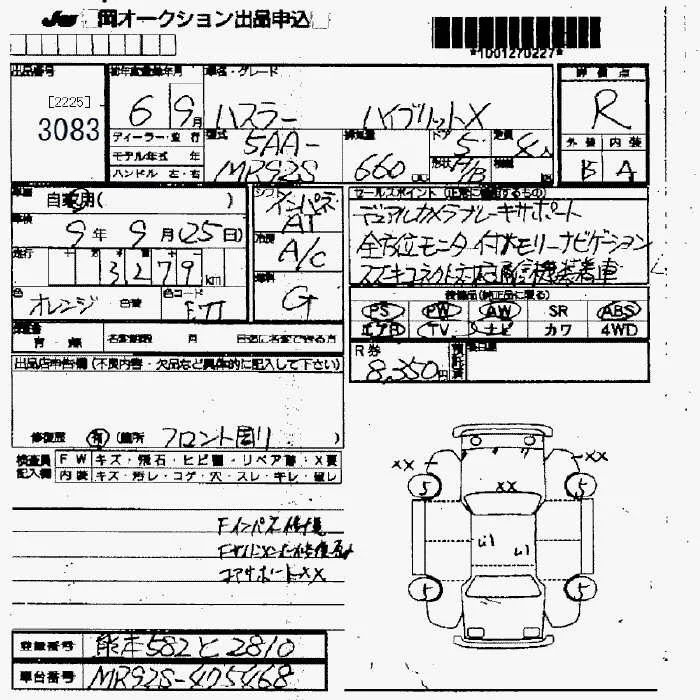 JU 岡オークション出品申込
*1001270227*
出品番号 初年度登録年月 車名・グレード 評価点
[2225]
3083
6 9月 ハスラー ハイブリットX R
ディーラー・並行 型式 排気量 ドア 定員 外装 内装
モデル年式 年 5AA- 5 4人
ハンドル 左・右 MR92S 660 形状 H/B B A
車歴 自家用( ) シフト インパネ AT
セールスポイント(正常に機能するもの)
デュアルカメラブレーキサポート
車検 9年 9月(25日) 冷房 A/C
全方位モニタ付メモリーナビゲーション
スズキコネクト対応通信機装着車
走行 13279km 燃料 G
装備品(純正品に限る)
色 オレンジ 色替 色コード
PS PW AW SR ABS
エアB TV ナビ カワ 4WD
名変期限 月
R券 8,350円 預託済
出品店申告欄(不良内容・欠品など具体的に記入して下さい)
修復歴 有 (箇所 フロント周リ )
検査員 FW キズ・飛石・ヒビ割・リペア跡・X要
記入欄 内装 キズ・汚レ・コゲ・穴・スレ・キレ・破レ
XX XX
5 XX 5
Fインパネ修復
コアサポートXX
5 5
登録番号 熊本582と2810
車台番号 MR92S-425468